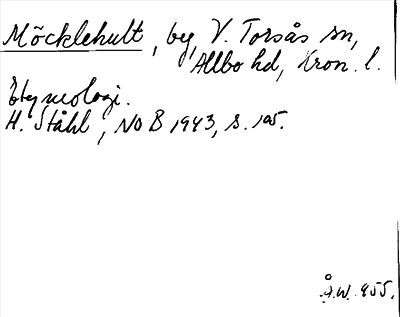 Möcklehult, by, V. Torsås sn,
Allbo hd, Kron. l.
Etymologi.
H. Ståhl, NoB 1943, s. 105.
Å.W. 955.